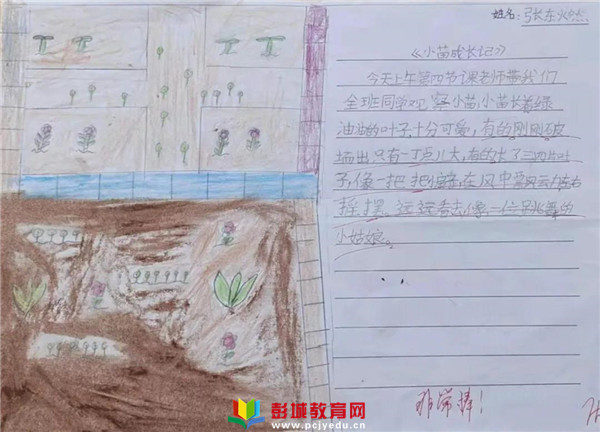 姓名：张东
《小苗成长记》
今天上午第四节课老师带我们
全班同学观察小苗，小苗长着绿
油油的叶子十分可爱，有的刚刚破
土而出只有一丁点儿大，有的长了三四片叶
子，像一把把在风中左右
摇摆，远远看去像一位跳舞的
小姑娘。
非常棒！
彭城教育网
www.pcjyedu.cn